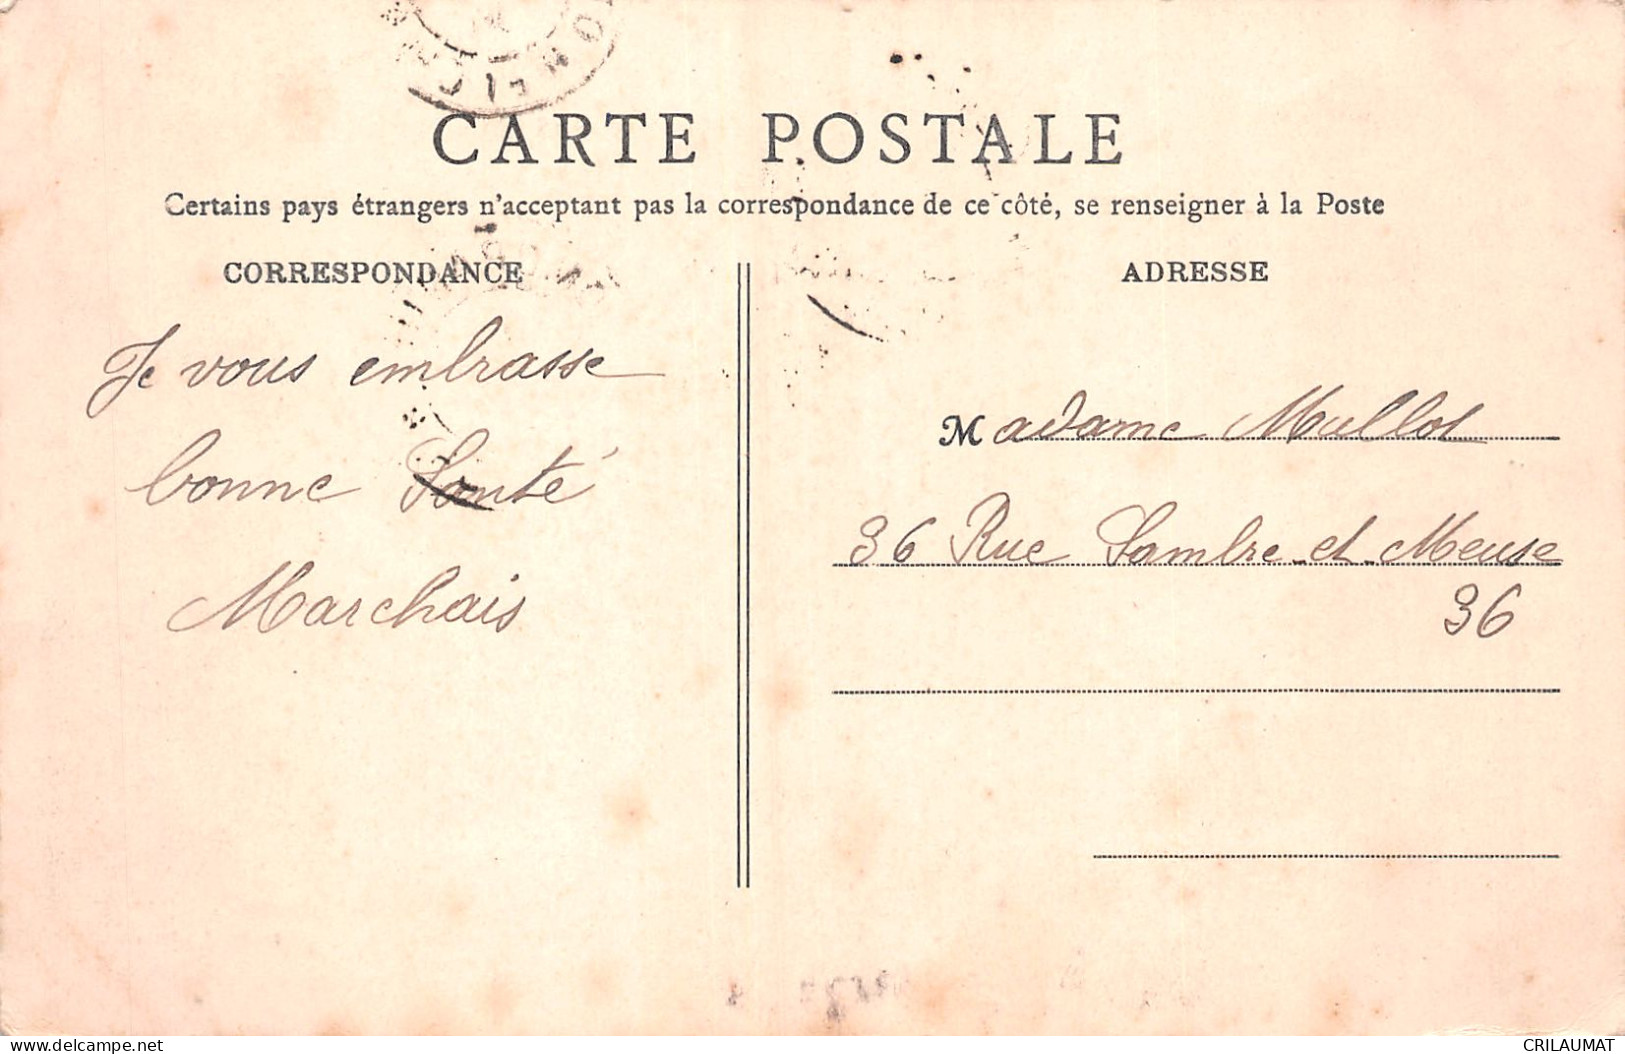 CARTE POSTALE
Certains pays étrangers n'acceptant pas la correspondance de ce côté, se renseigner à la Poste
CORRESPONDANCE
Je vous embrasse
bonne Santé
Marchais
ADRESSE
Madame Mullot
36 Rue Sambre et Meuse
36
delcampe.net
CRILAUMAT